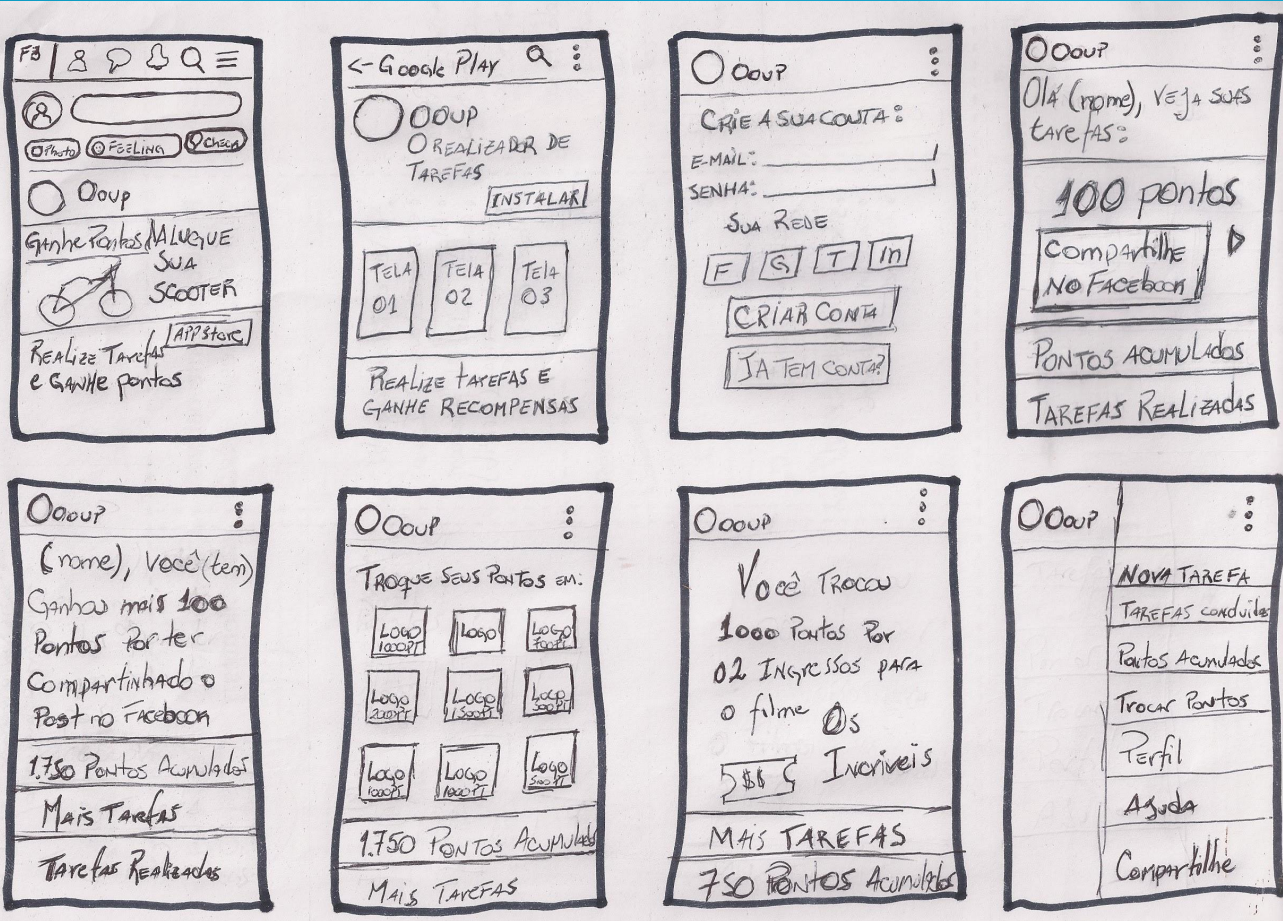 FB
Photo
FEELING
Check
Ooup
Ganhe Pontos
ALUGUE
SUA
SCOOTER
APPStore
REALIZE Tarefas
e GANHE pontos
<- GOOGLE PLAY
OOUP
O REALIZADOR DE
TAREFAS
INSTALAR
TELA
01
TELA
02
TELA
03
REALIZE TAREFAS E
GANHE RECOMPENSAS
OOUP
CRIE A SUA CONTA:
E-MAIL:
SENHA:
SUA REDE
F
G
T
in
CRIAR CONTA
JA TEM CONTA?
OOUP
Olá (nome), VEJA SUAS
tarefas:
100 pontos
Compartilhe
NO FACEBOOK
PONTOS ACUMULADOS
TAREFAS REALIZADAS
OOUP
(nome), Você (tem)
Ganhou mais 100
Pontos Por ter
Compartinhado o
Post no FACEBOOK
1.750 Pontos Acumulados
MAIS TAREFAS
Tarefas Realizadas
OOUP
TROQUE SEUS PONTOS EM:
LOGO
1000PT
LOGO
LOGO
700PT
LOGO
2000PT
LOGO
1500PT
LOGO
500PT
LOGO
1000PT
LOGO
1000PT
LOGO
500PT
1.750 PONTOS ACUMULADOS
MAIS TAREFAS
OOUP
Você TROCOU
1000 Pontos Por
02 INGRESSOS PARA
o filme Os
Incriveis
$$
MAIS TAREFAS
750 PONTOS Acumulados
OOUP
NOVA TAREFA
TAREFAS concluidas
Pontos Acumulados
Trocar Pontos
Perfil
Ajuda
Compartilhe